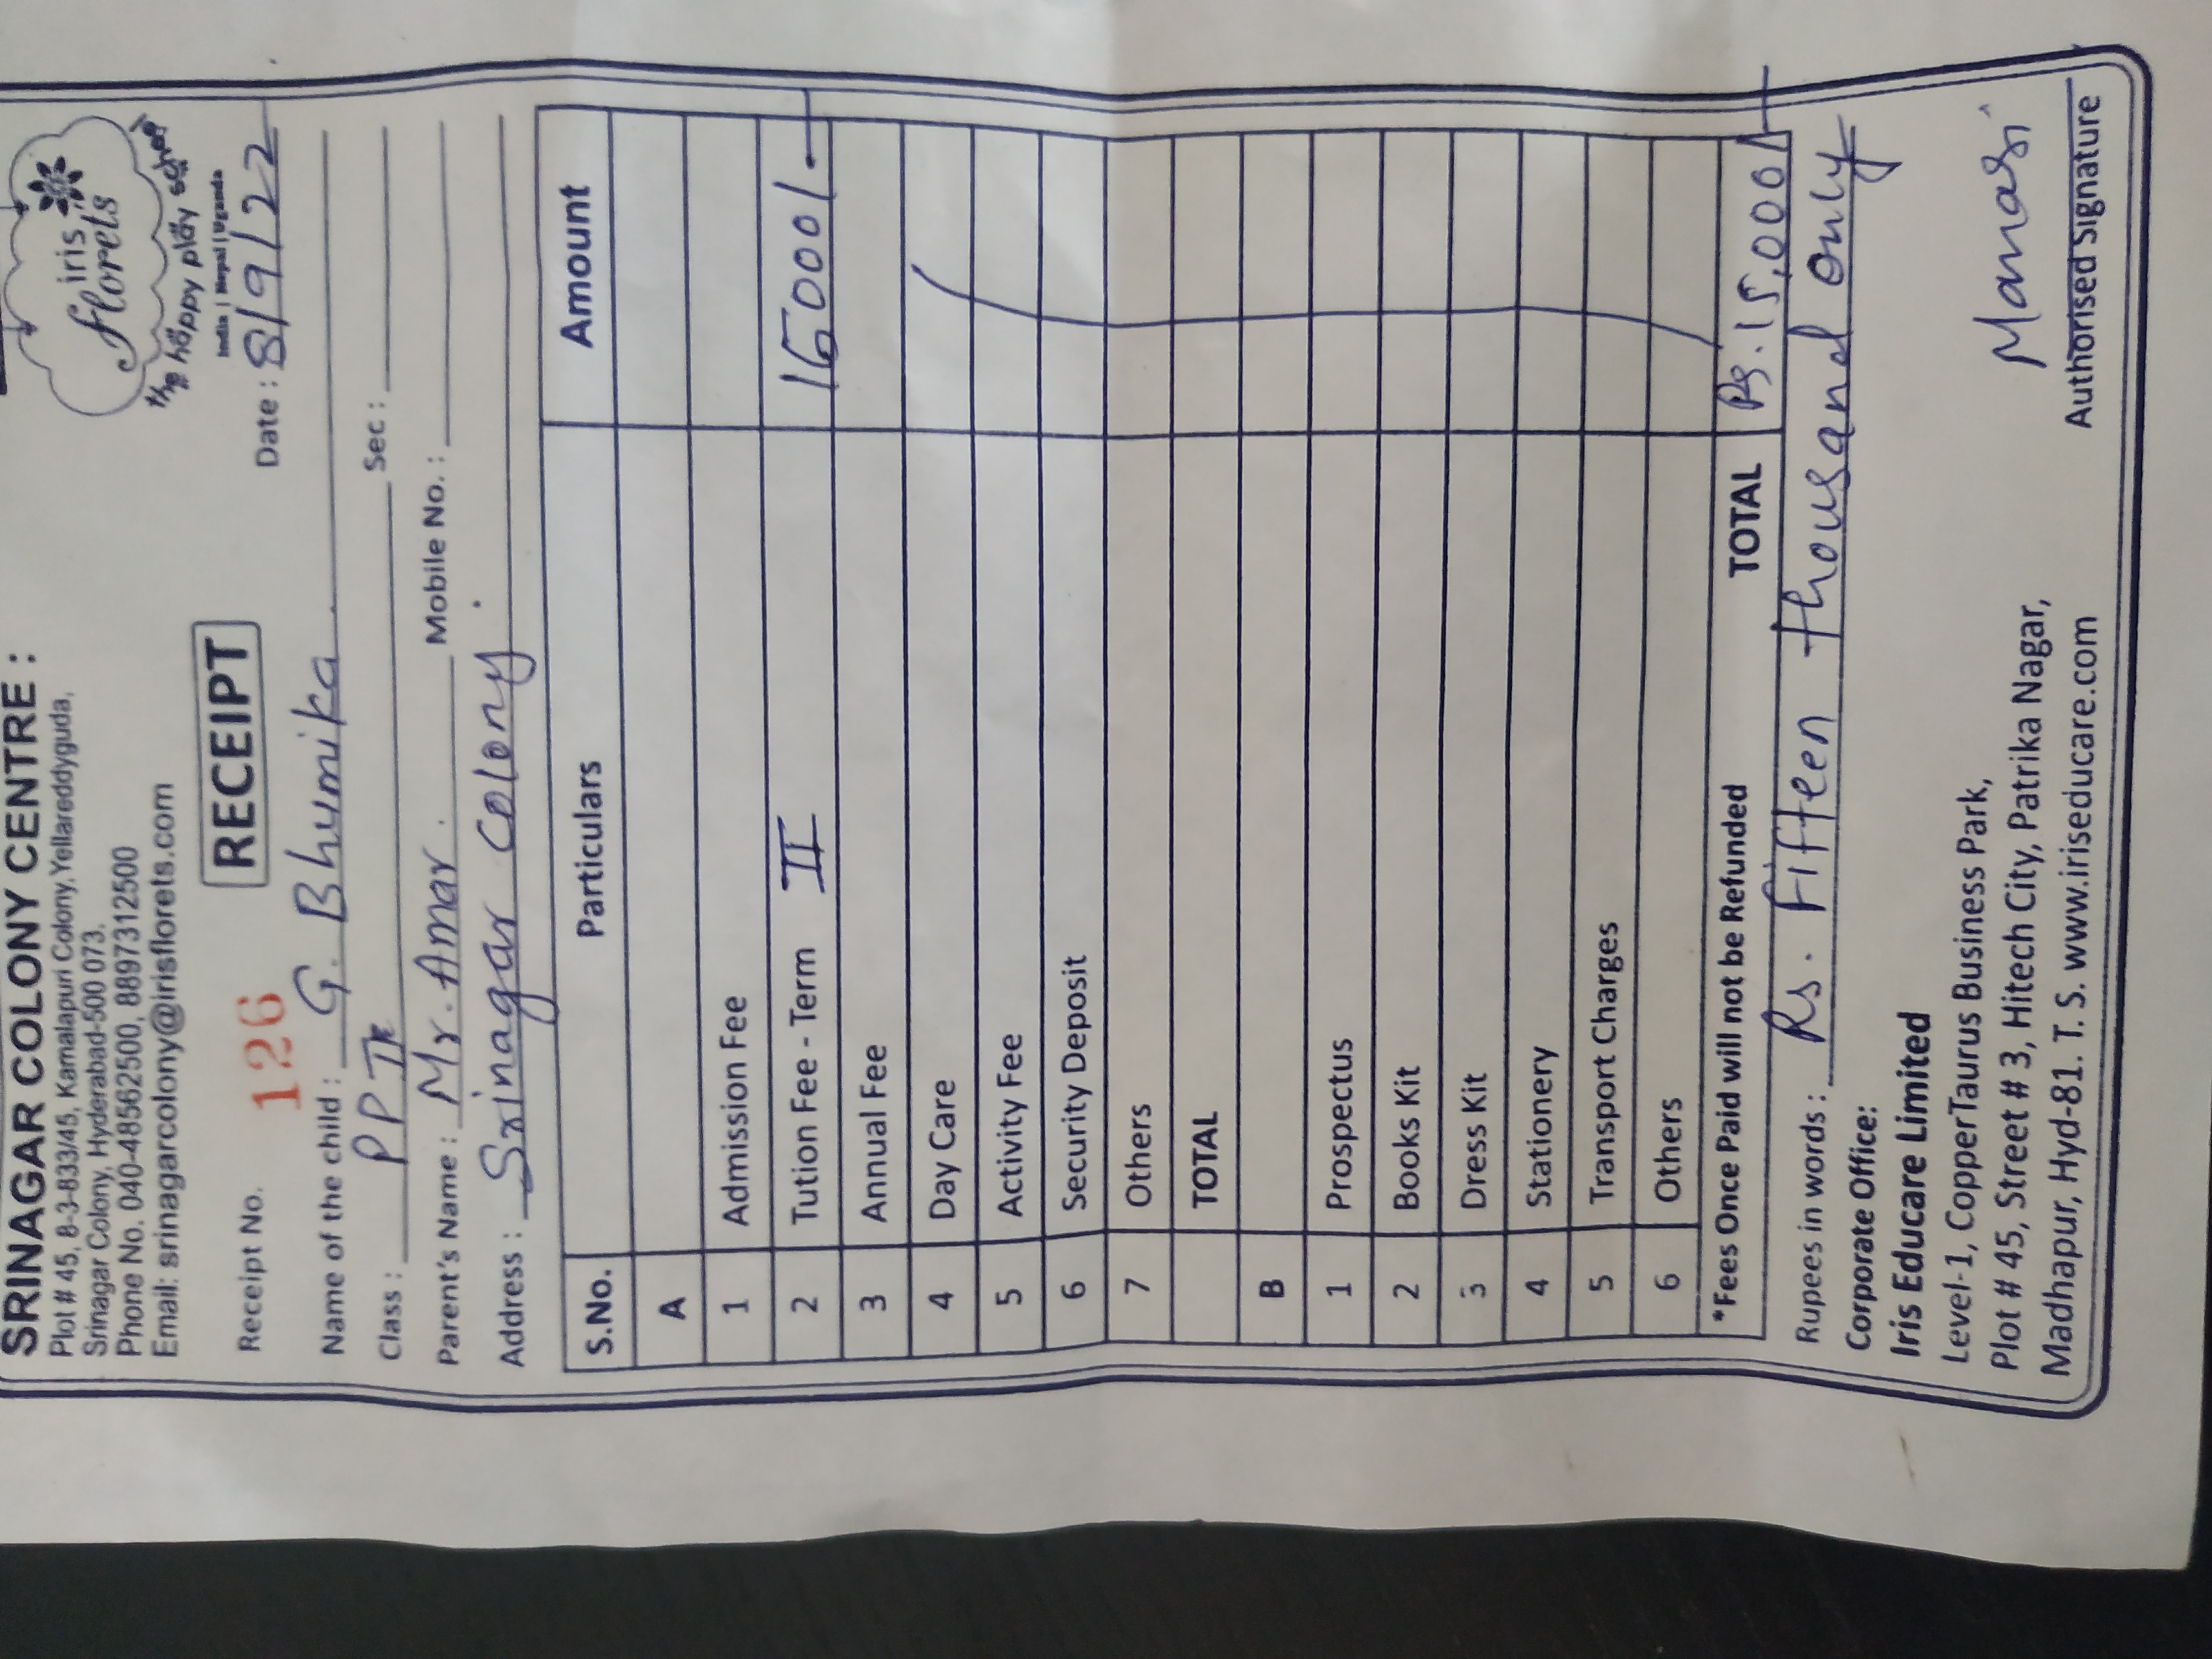 SRINAGAR COLONY CENTRE :
Plot # 45, 8-3-833/45, Kamalapuri Colony, Yellareddyguda,
Srinagar Colony, Hyderabad-500 073.
Phone No. 040-48562500, 8897312500
Email: srinagarcolony@irisflorets.com
iris
florets
the happy play school
India | Nepal | Uganda
RECEIPT
Receipt No. 126
Date : 8/9/22
Name of the child : G. Bhumika
Class : PP II Sec :
Parent's Name : Mr. Amar. Mobile No. :
Address : Srinagar Colony.
S.No. Particulars Amount
A
1 Admission Fee
2 Tution Fee - Term II 15000/-
3 Annual Fee
4 Day Care
5 Activity Fee
6 Security Deposit
7 Others
TOTAL
B
1 Prospectus
2 Books Kit
3 Dress Kit
4 Stationery
5 Transport Charges
6 Others
*Fees Once Paid will not be Refunded TOTAL Rs. 15,000/-
Rupees in words : Rs. Fifteen thousand only
Corporate Office:
Iris Educare Limited
Level-1, CopperTaurus Business Park,
Plot # 45, Street # 3, Hitech City, Patrika Nagar,
Madhapur, Hyd-81. T. S. www.iriseducare.com
Manasi
Authorised Signature